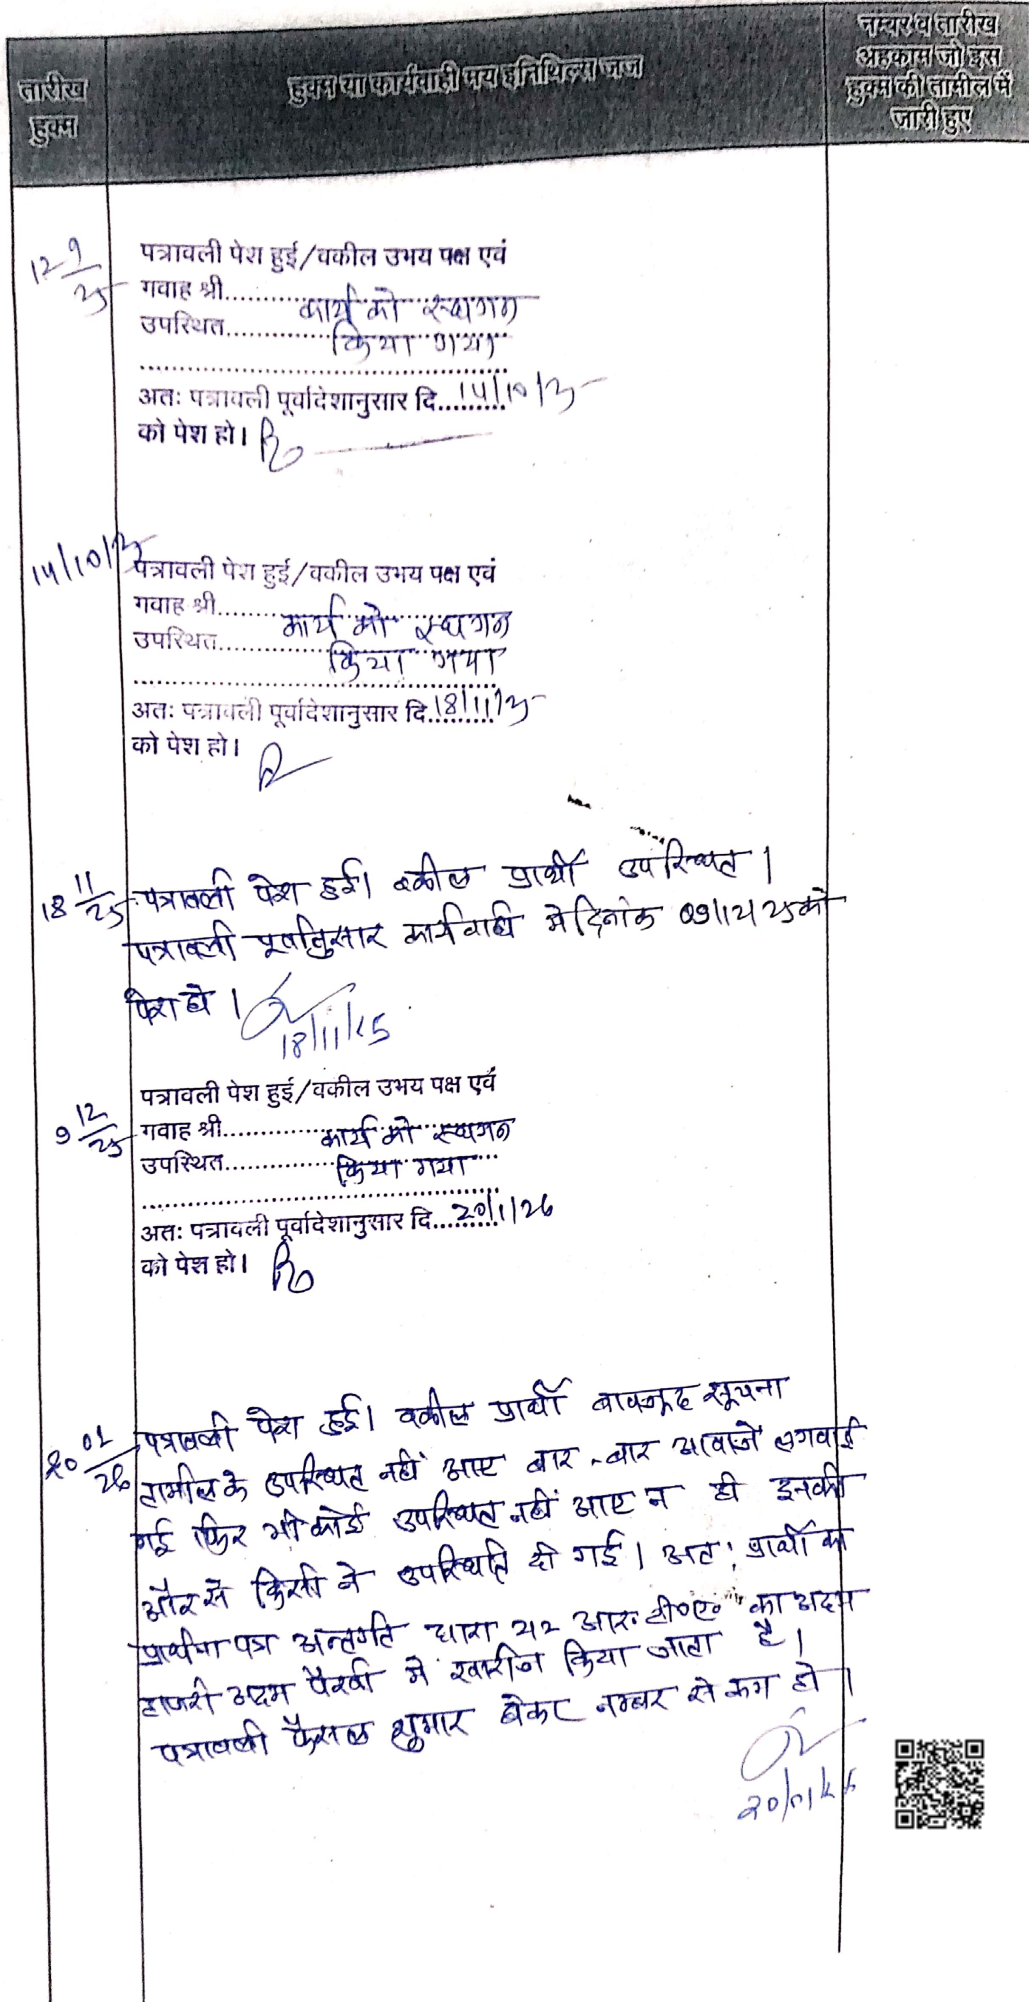 तारीख
हुक्म
हुक्म या कार्यवाही मय इनिशियल्स जज
नम्बर व तारीख
अहकाम जो इस
हुक्म की तामील में
जारी हुए
12 9/25
पत्रावली पेश हुई/वकील उभय पक्ष एवं
गवाह श्री.......... कार्य को स्थगन
उपस्थित.......... किया गया
अतः पत्रावली पूर्वादेशानुसार दि.......... 14/10/25
को पेश हो।
14/10/25
पत्रावली पेश हुई/वकील उभय पक्ष एवं
गवाह श्री.......... कार्य को स्थगन
उपस्थित.......... किया गया
अतः पत्रावली पूर्वादेशानुसार दि.......... 18/11/25
को पेश हो।
18 11/25 पत्रावली पेश हुई। वकील प्रार्थी उपस्थित।
पत्रावली पूर्वानुसार कार्यवाही में दिनांक 09/12/25 को
पेश हो।
18/11/25
9 12/25
पत्रावली पेश हुई/वकील उभय पक्ष एवं
गवाह श्री.......... कार्य को स्थगन
उपस्थित.......... किया गया
अतः पत्रावली पूर्वादेशानुसार दि.......... 20/1/26
को पेश हो।
20 01/26 पत्रावली पेश हुई। वकील प्रार्थी बावजूद सूचना
तामील के उपस्थित नहीं आए बार-बार आवाजें लगवाई
गई फिर भी कोई उपस्थित नहीं आए न ही इनकी
और से किसी ने उपस्थिति दी गई। अतः प्रार्थी का
प्रार्थना पत्र अन्तर्गत धारा 212 आर.टी०ए० का अदम
हाजरी अदम पैरवी में खारीज किया जाता है।
पत्रावली फैसल शुमार होकर नम्बर से कम हो।
20/01/26